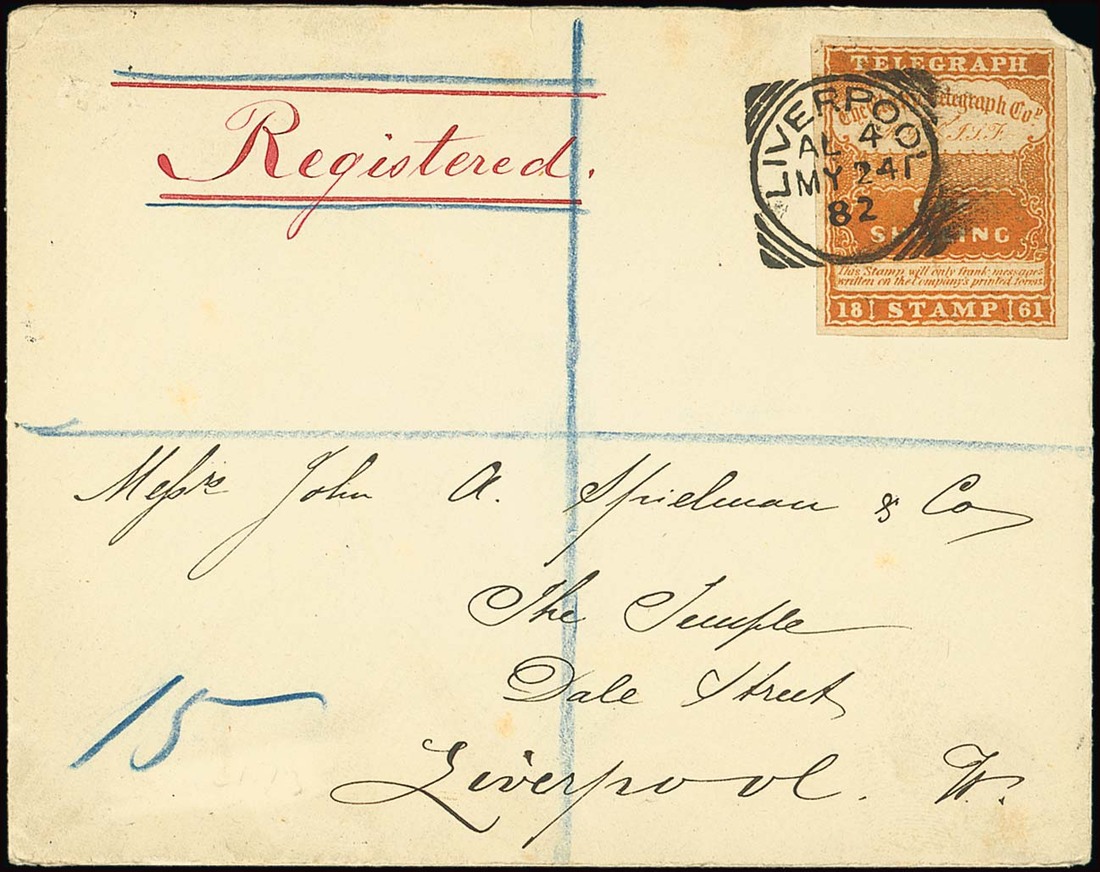 Registered.
TELEGRAPH
The Telegraph Coy
SHILLING
This Stamp will only frank messages
written on the Company's printed forms
18 STAMP 61
LIVERPOOL
AL 4
MY 24
82
Messrs John A. Spielman & Co
The Temple
Dale Street
Liverpool. W.
15